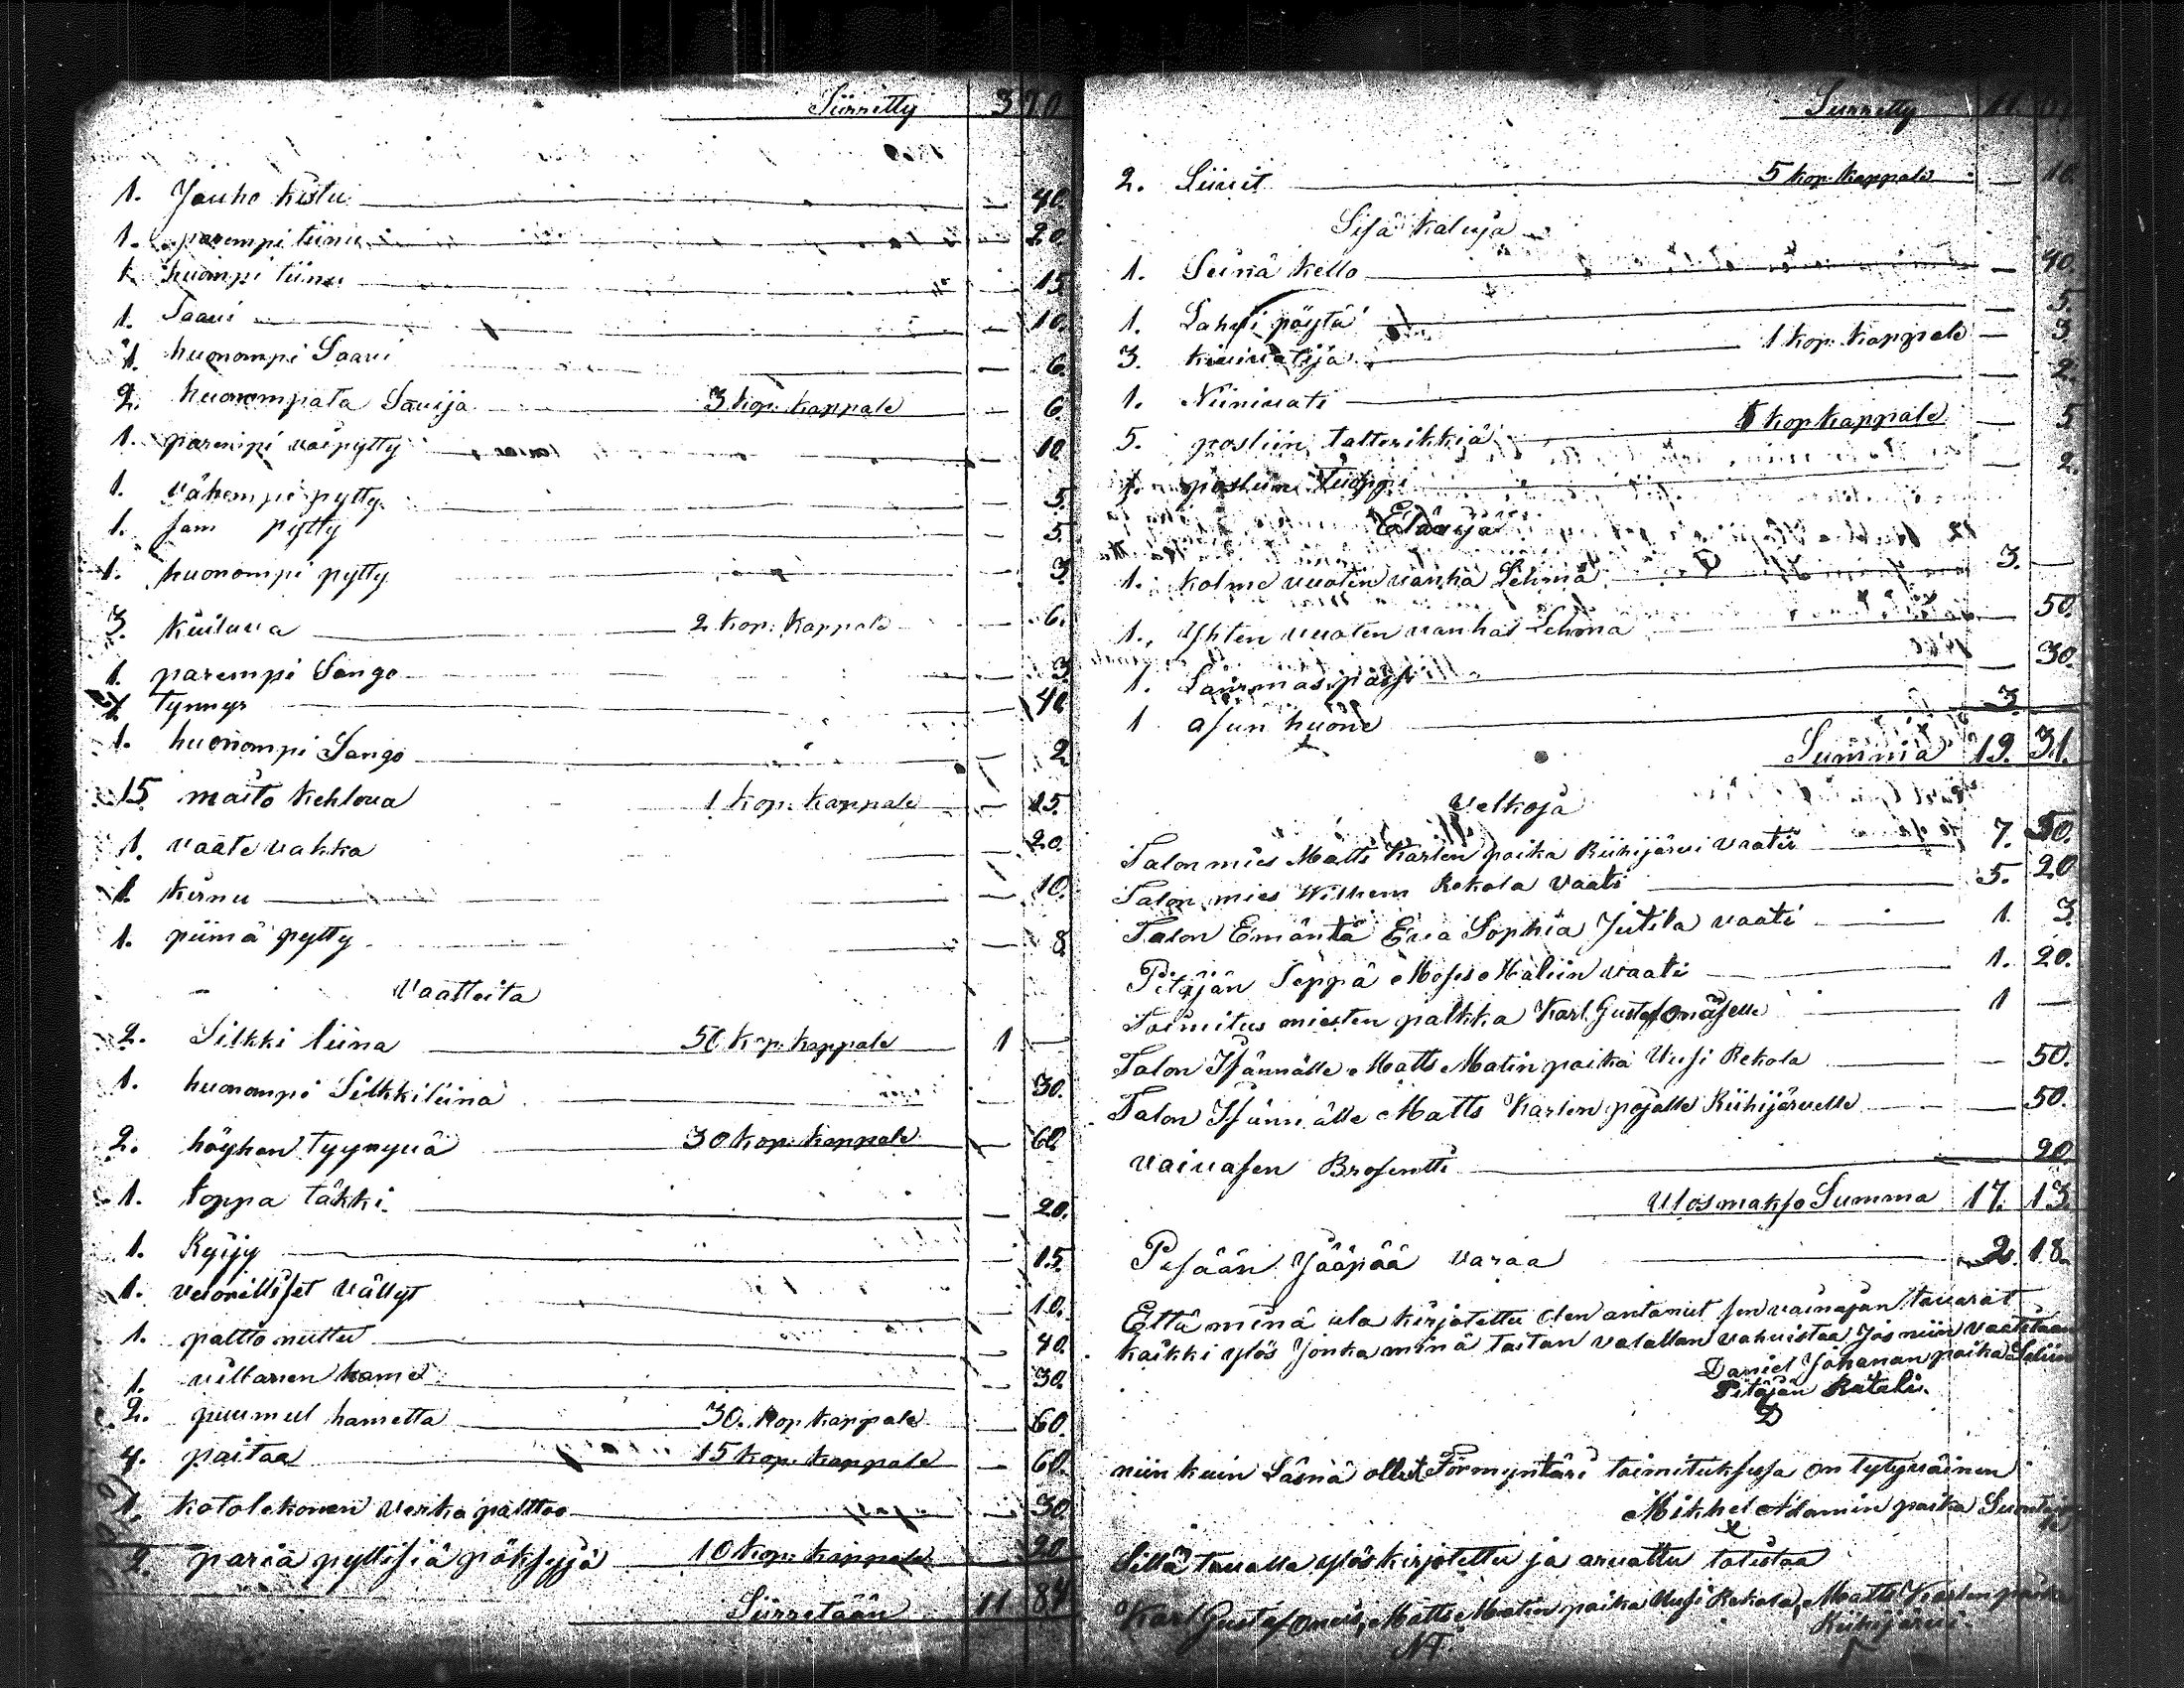 Siirretty 3 70
1. Jauho kistu 40.
1. parempi tiinu 20
1. huompi tiinu 15
1. Saavi 10.
1. huonompi Saavi 6.
2. huonompata Saavija 3 kop. kappale 6
1. parempi voipytty 10
1. vähempi pytty 5.
1. sam pytty 5.
1. huonompi pytty 3
3. kiuluva 2 kop. kappale 6.
1. parempi Sango 3
tynnyr 40
1. huonompi Sango 2
15 maito kehlova 1 kop. kappale 15.
1. vaate vakka 20.
1. kirnu 10.
1. piimä pytty 8
Vaatteita
2. Silkki liina 50 kop. kappale 1 —
1. huonompi Silkkiliina 30.
2. höyhen tyynyvä 30 kop. kappale 60
1. toppa täkki 20.
1. Ryijy 15.
1. vällyt 10.
1. paltto nuttu 40.
1. villanen hame 30.
2. puumul hametta 30. kop kappale 60.
4. paitaa 15 kop. kappale 60.
1. kotolekonen verka palttoo 30
2. pariä pyttisiä pöksyjä 10 kop. kappale 20
Siirretään 11 84
Siirretty 11. 84
2. Liivit 5 kop. kappale 10.
Sisä kaluja
1. Seinä kello 40.
1. Lahvi pöytä 5.
3. kivivatija 1 kop. kappale 3
1. Niinivati 2.
5. posliin talterikkiä 1 kop kappale 5
1. posliin tuoppi 2.
Eläviä
1. kolme vuoten vanha Lehmä 3. —
1. Yhten vuoten vanha Lehmä 50.
1. Lammas pässi 30.
1 asun huone 3.
Summa 19. 31.
Velkoja
Talon mies Matts Karlen poika Riihijärvi vaati 7. 50.
Talon mies Wilhem Rekola vaati 5. 20
Talon Emäntä Eva Sophia Jutila vaati 1. 3.
Pitäjän Seppä Moses Malin vaati 1. 20.
Toimitus miesten palkka Karl Gustaf 1 —
Talon Isännälle Matts Matin poika Uusi Rekola — 50.
Talon Isännälle Matts Karlen pojalle Riihijärvelle — 50.
vaivasen Brosentti 20
Ulosmakso Summa 17. 13
Pesään Jääpää varaa 2. 18.
Että minä ala kirjotettu olen antanut sen vainajan tavarat
kaikki ylös Jonka minä taitan valallan vahvistaa Jos niin vaatitaan
Daniel Johanan poika
Pitäjän Rätäli.
niin kuin Läsnä ollut Förmyntäri toimituksesa on tytyväinen
Mikhel Adamin poika
Sillä tavalla ylöskirjotettu ja arvattu totistaa
Karl Gustaf, Matts Matin poika Uusi Rekola, Matts Karlen poika
Riihijärvi.